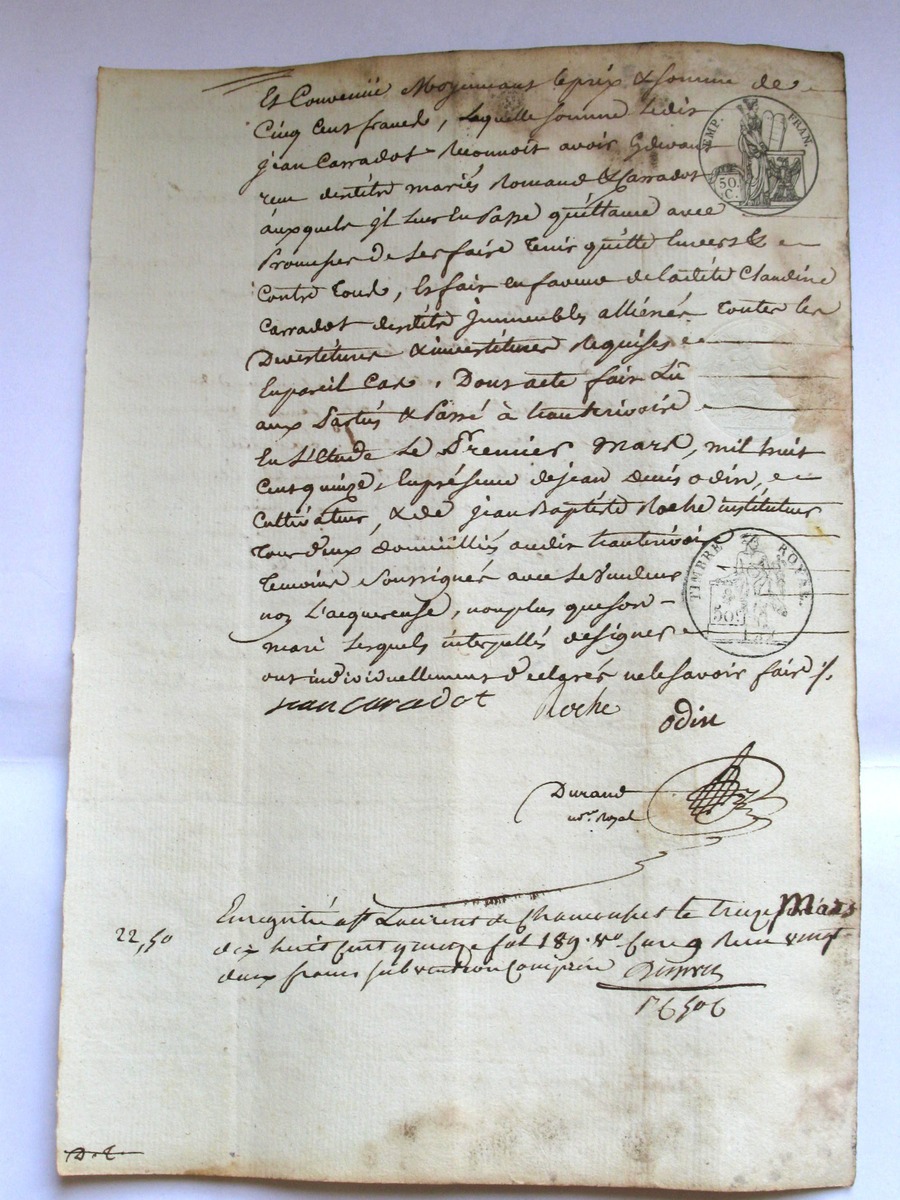 Est Convenüe Moyennant le prix & somme de
Cinq Cent francs, laquelle somme Ledit
jean Carradot Reconnoit avoir
reçu desdits mariés Romand & Carradot
auxquels jl Lues En Passe quittance avec
Promesse de Les faire tenir quitte Envers &
Contre tous, Et fait en faveur de ladite Claudine
Carradot desdits Jmmeubles alliénés toutes les
Devestitures & investitures Requises
En pareil Cas, Dont acte fait Lû
aux Parties & Passé à hauterivoire
En L'étude Le Premier Mars, mil huit
Cent quinze, En présence de jean denis odin,
Cultivateur, & de jean Baptiste Roche instituteur
tous deux domiciliés audit hauterivoire
Temoins Soussignés avec Le Vendeur
non L'acquereuse, non plus que son
mari Lesquels interpellés de signer
ont individuellement déclarés ne le savoir faire ./.
TIMP. FRAN.
50. C.
TIMBRE ROYAL.
50
jean caradot Roche odin
Durand
nre. Royal
22,50
Enregistré à St Laurent de Chamousset le treize Mars
dix huit Cent quinze fol 189. vo Case 9 Reçu vingt
deux francs subvention Comprise
D.t